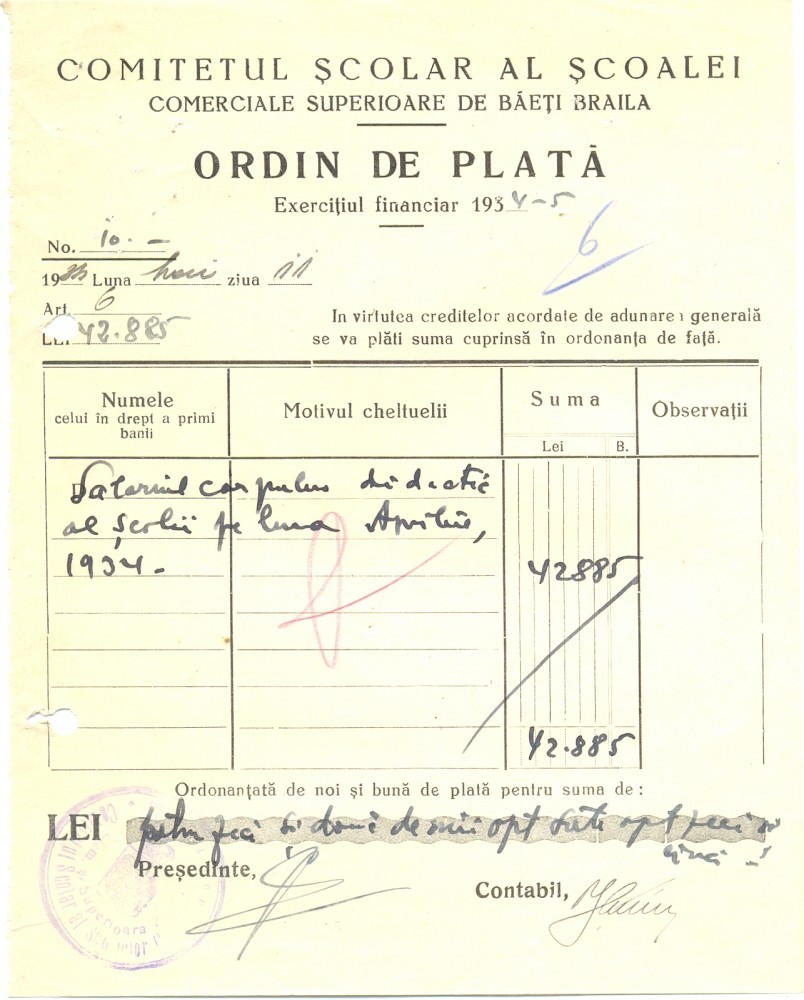 COMITETUL ȘCOLAR AL ȘCOALEI
COMERCIALE SUPERIOARE DE BĂEȚI BRAILA
ORDIN DE PLATĂ
Exercițiul financiar 1934-5
6
No. 10.-
19 Luna ziua 11
Art. 6
LEI 42.885
In virtutea creditelor acordate de adunarea generală
se va plăti suma cuprinsă în ordonanța de față.
Numele
celui în drept a primi
banii
Motivul cheltuelii
Suma
Lei B.
Observații
Salariul corpului didactic
al școlii pe luna Aprilie,
1934.-
42885
42.885
Ordonanțată de noi și bună de plată pentru suma de:
LEI patru zeci și două de mii opt sute opt zeci și
cinci
Președinte,
Contabil,